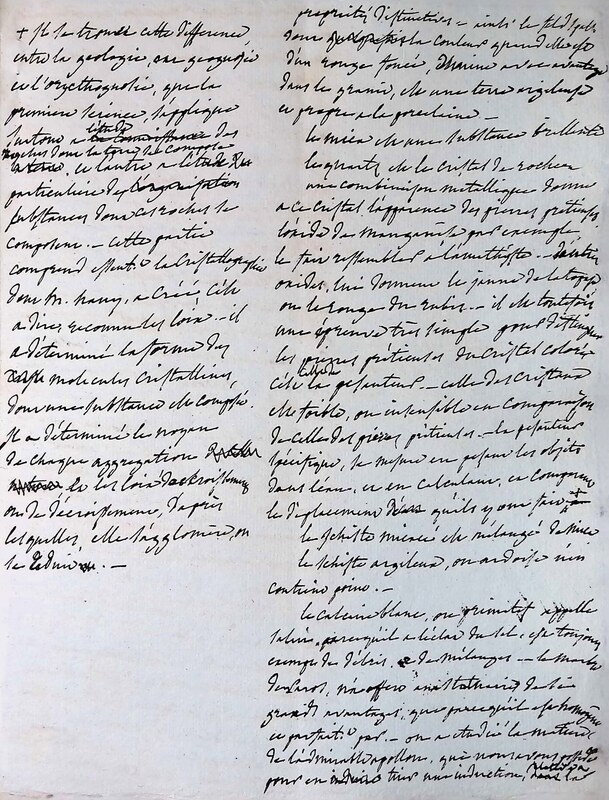 + Il se trouve cette différence
entre la geologie, ou geognosie
et l'oryctognosie, que la
premiere science, s'applique
surtout a l'étude des
roches dont la terre se compose
et l'autre a l'étude
particuliere des
substances dont ces roches se
composent. — cette partie
comprend essent.t la Cristallographie
dont Mr. hauy, a créé, c'est
a dire, reconnu les loix. — il
a déterminé la forme des
molecules cristallines,
dont une substance est composée.
Il a déterminé le noyau
de chaque aggregation
et les loix d'accroissement
ou de décroissement, d'après
lesquelles, elle s'agglomère, ou
se réduit. —
propriétés distinctives — ainsi le feldspath
dont la couleur quand elle est
d'un rouge foncé, avec avantage
dans le granit, est une terre argileuse
et propre a la porcelaine —
le mica est une substance brillante
le quartz est le cristal de roche
une combinaison metallique donne
a ce cristal l'apparence des pierres précieuses
l'oxide de manganèse par exemple,
le fait ressembler a l'améthiste — d'autres
oxides, lui donnent le jaune de la topaze
ou le rouge du rubis. — il est toutefois
une épreuve très simple pour distinguer
les pierres précieuses du cristal colorié
c'est celle de la pesanteur. — celle des cristaux
est foible, ou insensible en comparaison
de celle des pierres précieuses. — la pesanteur
spécifique, se mesure en pesant les objets
dans l'eau, et en calculant, et comparant
le déplacement qu'ils y ont fait +
le schiste micacé est mélangé de mica
le schiste argileux, ou ardoise n'en
contient point. —
le calcaire blanc, ou primitif appellé
salin, parcequ'il a l'éclat du sel, est toujours
exempt de débris, et de mélanges — le marbre
de paros, n'a offert aux statuaires de si
grands avantages, que parcequ'il est homogène
et parfait.t pur. — on a étudié la matiere
de l'admirable apollon, que nous avons possédé
pour en tirer une induction,